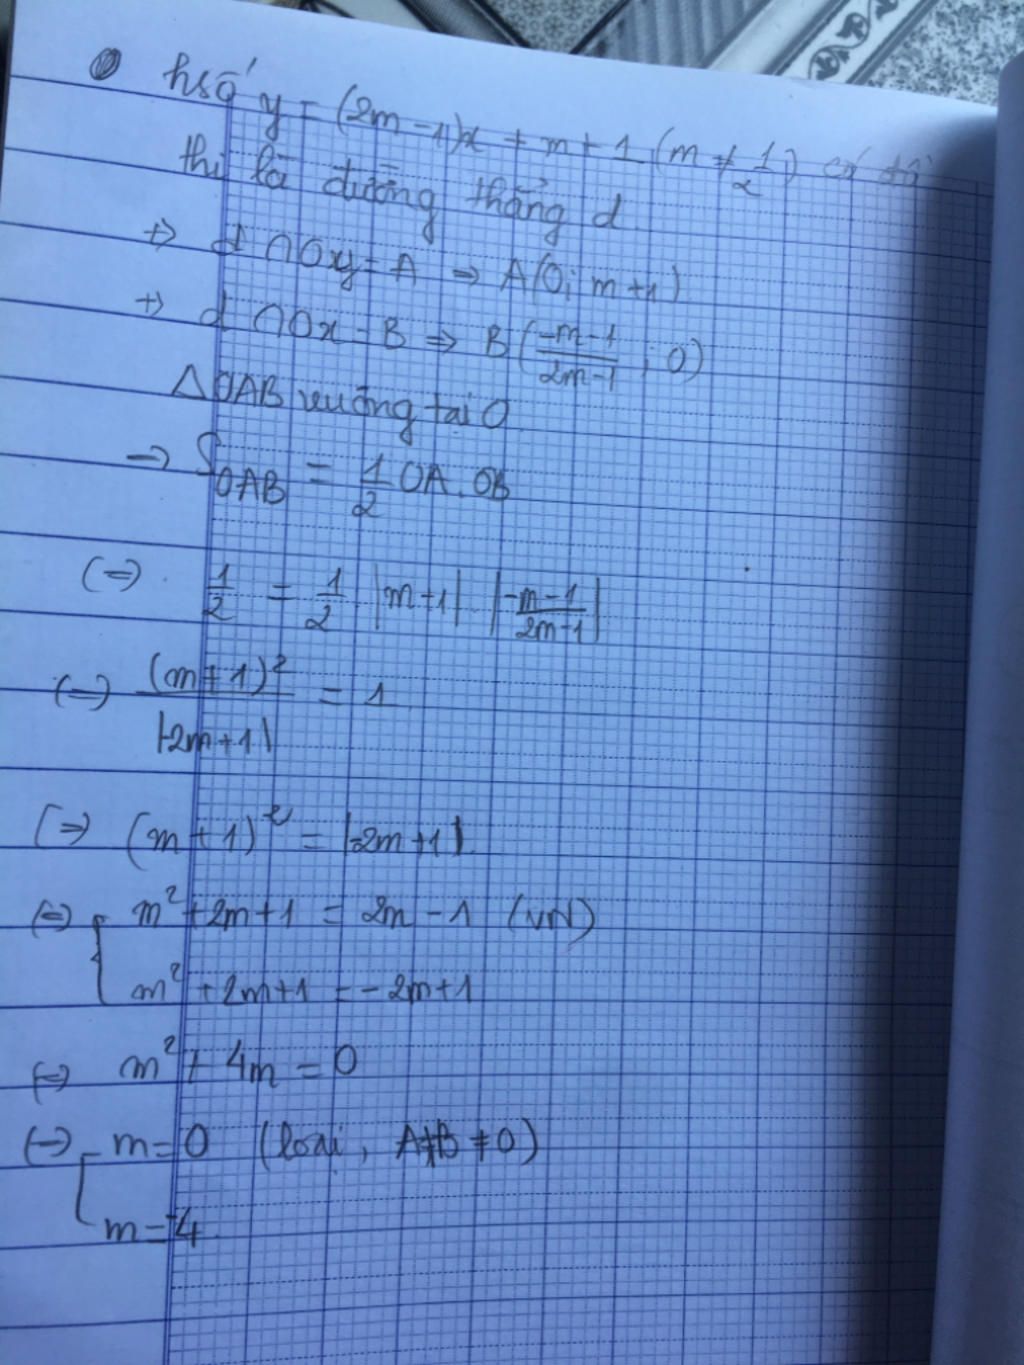 hsố y = (2m-1)x + m + 1 (m ≠ 1/2) có đồ
thị là đường thẳng d
+) d ∩ Oy = A ⇒ A(0; m+1)
+) d ∩ Ox = B ⇒ B(\frac{-m-1}{2m-1}; 0)
ΔOAB vuông tại O
→ S_{OAB} = \frac{1}{2} OA.OB
(⇒) \frac{1}{2} = \frac{1}{2} |m+1| |\frac{-m-1}{2m-1}|
(⇒) \frac{(m+1)^2}{|-2m+1|} = 1
(⇒) (m+1)^2 = |-2m+1|
(⇒) [ m^2+2m+1 = 2m-1 (VN)
m^2+2m+1 = -2m+1
(⇒) m^2+4m = 0
(⇒) [ m=0 (loại, A≠B≠0)
m=-4